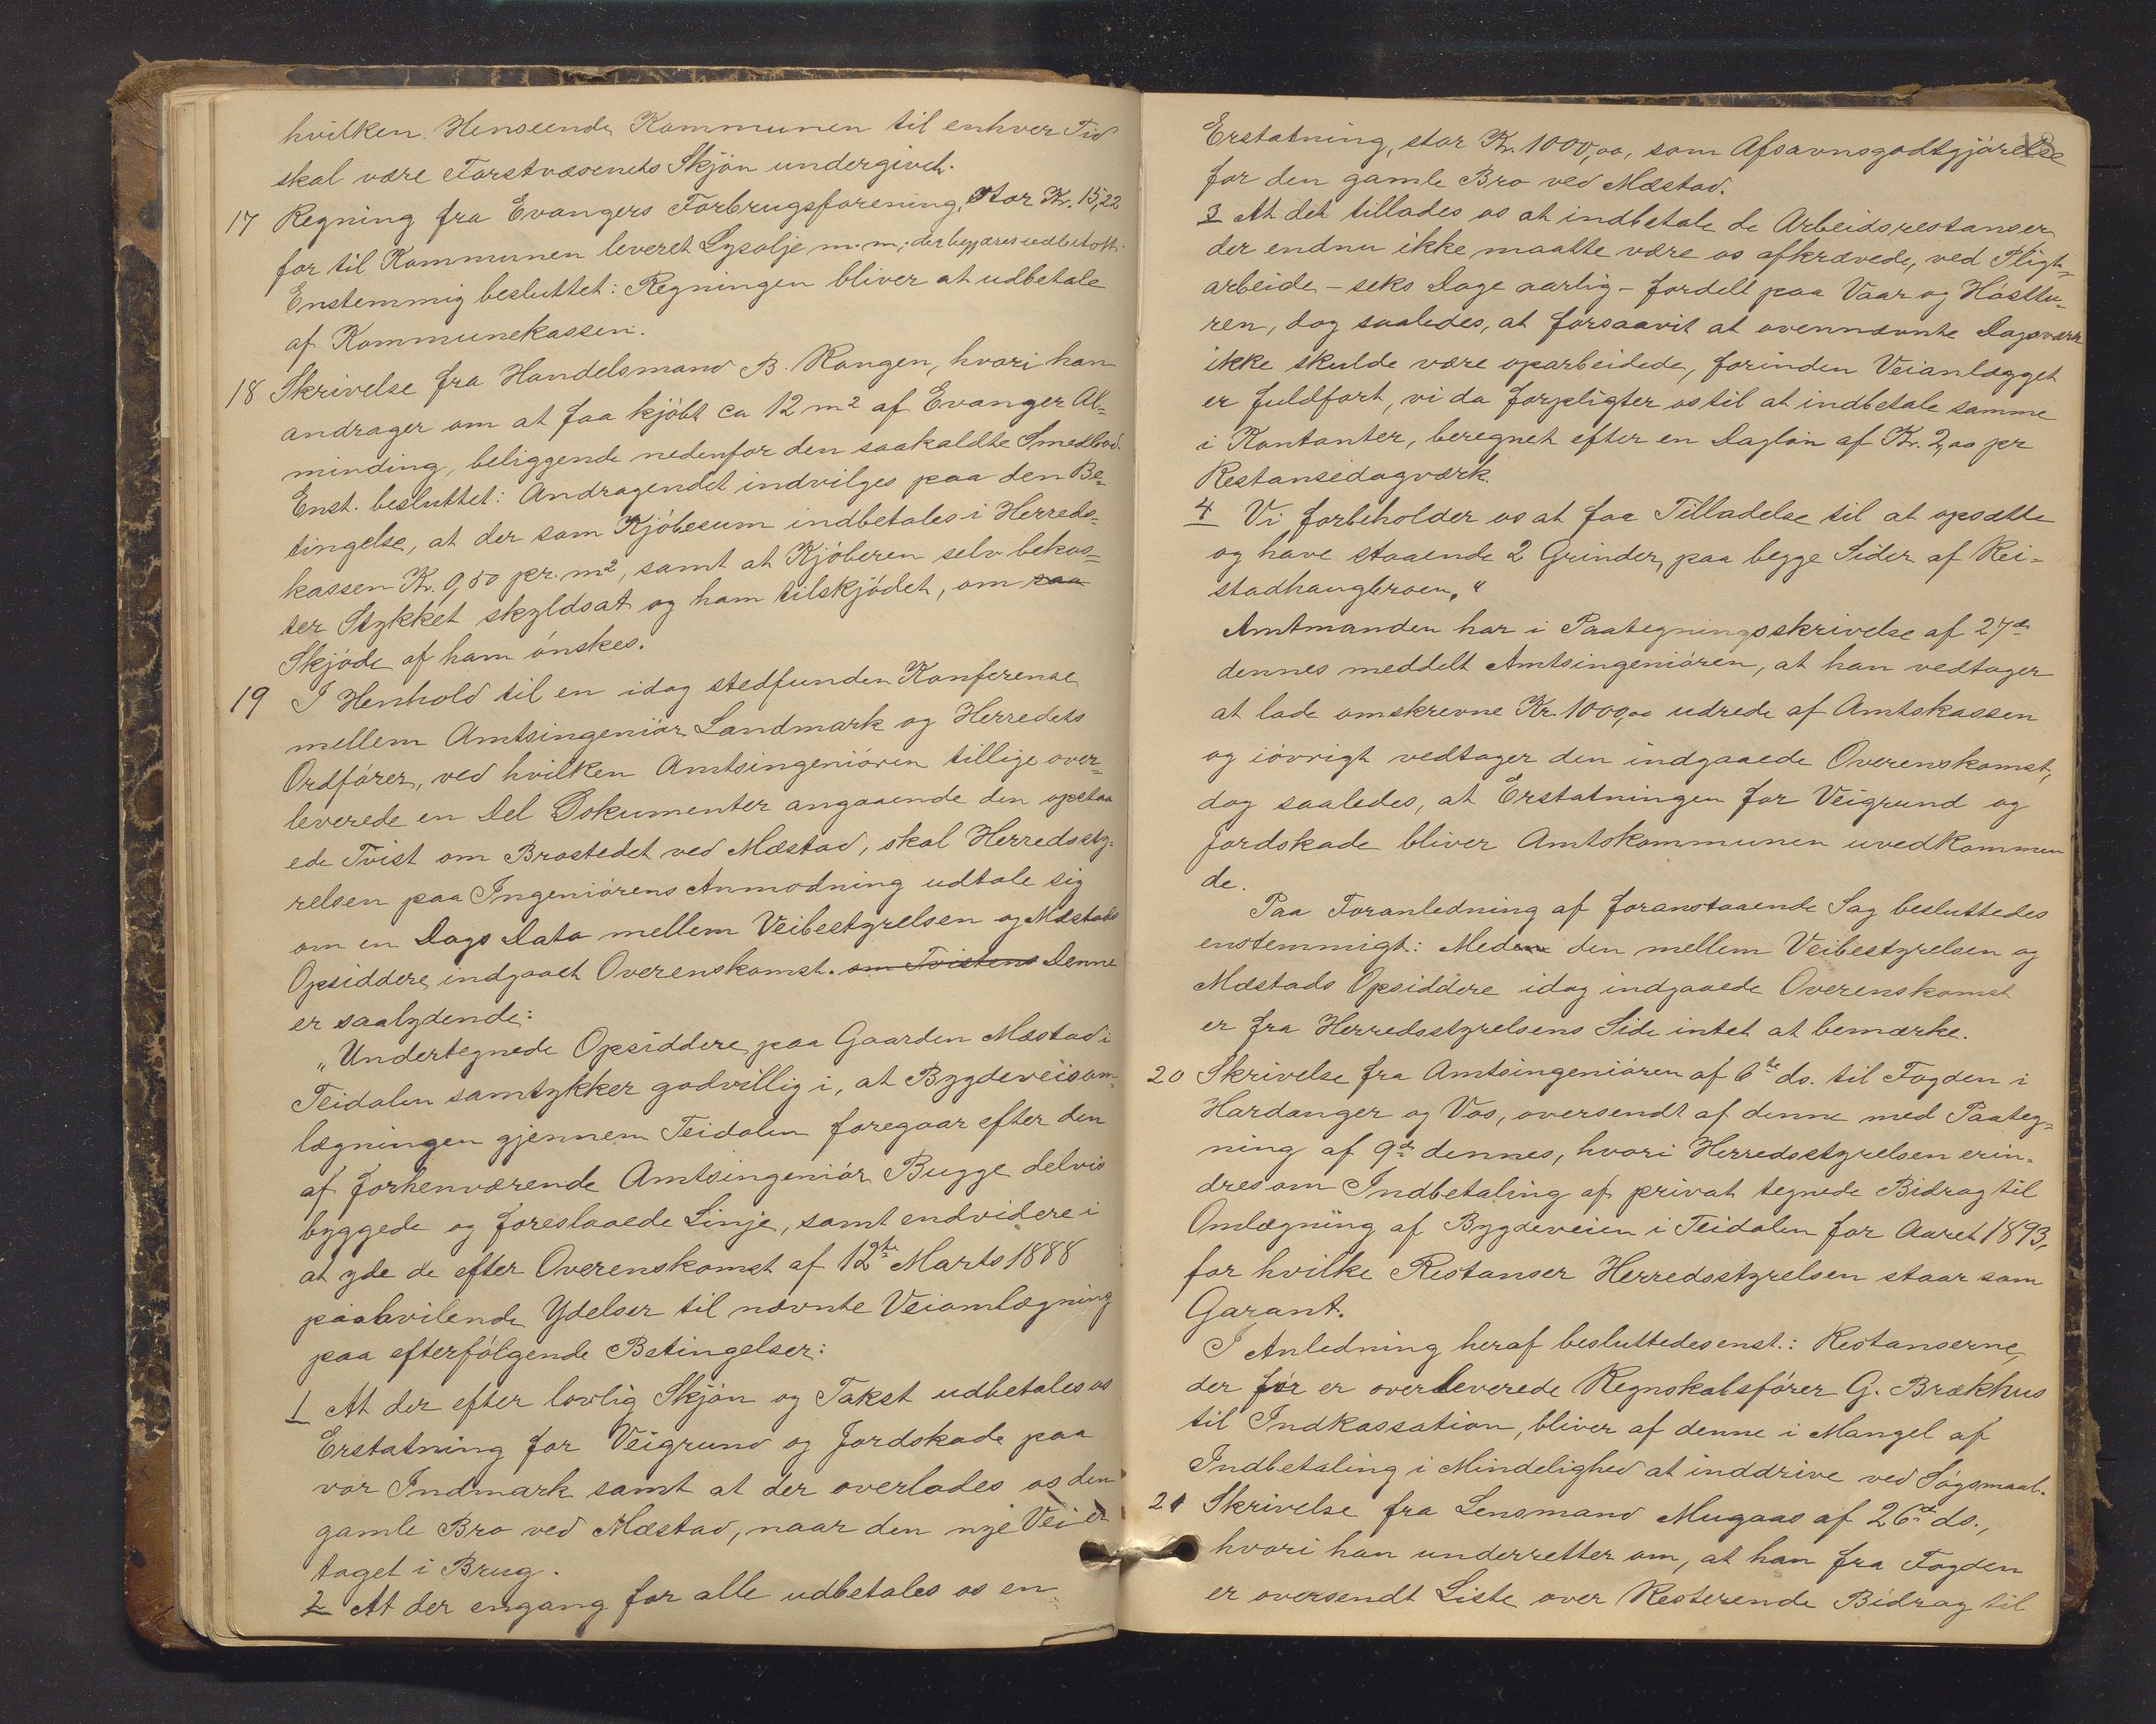 hvilken Henseende Kommunen til enhver Tid
skal være Forstvæsenets Skjön undergivet.
17 Regning fra Evangers Forbrugsforening, stor Kr. 15,22
for til Kommunen leveret Lysolje m.m.; der begjæres udbetalt.
Enstemmig besluttet: Regningen bliver at udbetale
af Kommunekassen.
18 Skrivelse fra Handelsmand B. Rongen, hvori han
andrager om at faa kjöbt ca 12 m² af Evanger Al=
minding, beliggende nedenfor den saakaldte Smedbod.
Enst. besluttet: Andragendet indvilges paa den Be=
tingelse, at der som Kjöbesum indbetales i Herreds=
kassen Kr. 0,50 pr. m², samt at Kjöberen selv bekos=
ter Stykket skyldsat og ham tilskjödet, om saa
Skjöde af ham önskes.
19 I Henhold til en idag stedfunden Konferense
mellem Amtsingeniör Landmark og Herredets
Ordförer, ved hvilken Amtsingeniören tillige over=
leverede en Del Dokumenter angaaende den opstaa
ede Tvist om Brostedet ved Mæstad, skal Herredssty=
relsen paa Ingeniörens Anmodning udtale sig
om en Dags Dato mellem Veibestyrelsen og Mæstads
Opsiddere indgaaet Overenskomst. om Tvistens Denne
er saalydende:
„Undertegnede Opsiddere paa Gaarden Mæstad i
Teidalen samtykker godvillig i, at Bygdeveisom=
lægningen gjennem Teidalen foregaar efter den
af forhenværende Amtsingeniör Bugge delvis
byggede og foreslaaede Linje, samt endvidere i
at yde de efter Overenskomst af 12te Marts 1888
paahvilende Ydelser til nævnte Veiomlægning
paa efterfölgende Betingelser:
1 At der efter lovlig Skjön og Takst udbetales os
Erstatning for Veigrund og Jordskade paa
vor Indmark samt at der overlades os den
gamle Bro ved Mæstad, naar den nye Vei er
taget i Brug.
2 At der engang for alle udbetales os en
Erstatning, stor Kr. 1000,00, som Afsavnsgodtgjörelse
for den gamle Bro ved Mæstad.
3 At det tillades os at indbetale de Arbeidsrestanser
der endnu ikke maatte være os afkrævede, ved Pligt=
arbeide – seks Dage aarlig – fordelt paa Vaar og Hösttu=
ren, dog saaledes, at forsaavit at ovennævnte Dagsværk
ikke skulde være oparbeidede, forinden Veianlægget
er fuldfört, vi da forpligter os til at indbetale samme
i Kontanter, beregnet efter en Daglön af Kr. 2,00 pr
Restansedagværk.
4 Vi forbeholder os at faa Tilladelse til at opsætte
og have staaende 2 Grinder, paa begge Sider af Rei=
stadhaugbroen.“
Amtmanden har i Paategningsskrivelse af 27de
dennes meddelt Amtsingeniören, at han vedtager
at lade omskrevne Kr. 1000,00 udrede af Amtskassen
og iövrigt vedtager den indgaaede Overenskomst,
dog saaledes, at Erstatningen for Veigrund og
Jordskade bliver Amtskommunen uvedkommen
de.
Paa Foranledning af foranstaaende Sag besluttedes
enstemmigt: Med den mellem Veibestyrelsen og
Mæstads Opsiddere idag indgaaede Overenskomst
er fra Herredsstyrelsens Side intet at bemærke.
20 Skrivelse fra Amtsingeniören af 6te ds. til Fogden i
Hardanger og Vos, oversendt af denne med Paateg=
ning af 9de dennes, hvori Herredsstyrelsen erin=
dres om Indbetaling af privat tegnede Bidrag til
Omlægning af Bygdeveien i Teidalen for Aaret 1893,
for hvilke Restanser Herredsstyrelsen staar som
Garant.
I Anledning heraf besluttedes enst.: Restanserne,
der för er overleverede Regnskabsförer G. Brækhus
til Indkassation, bliver af denne i Mangel af
Indbetaling i Mindelighed at inddrive ved Sögsmaal.
21 Skrivelse fra Lensmand Mugaas af 26de ds.,
hvori han underretter om, at han fra Fogden
er oversendt Liste over Resterende Bidrag til